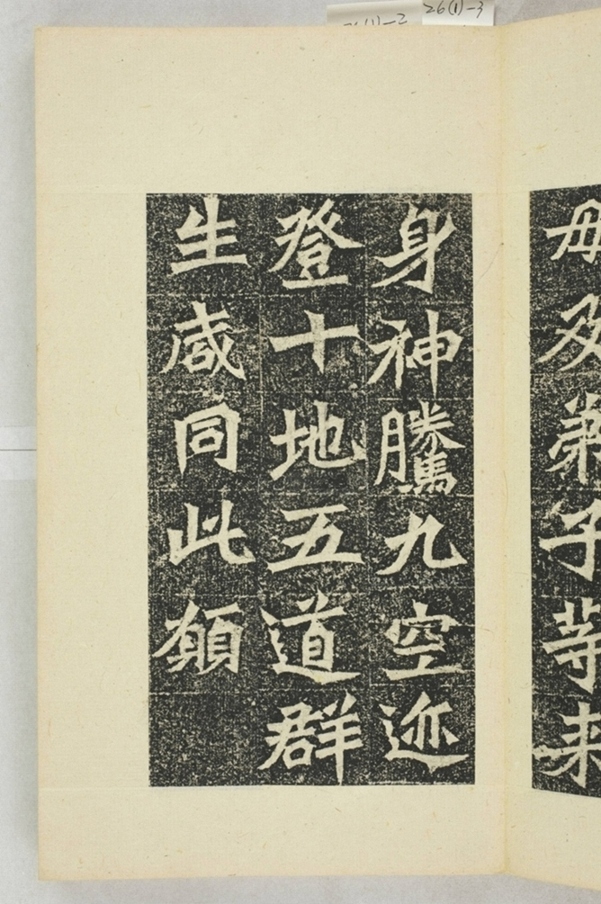 母及苐子䓁来
身神騰九空迹
登十地五道群
生咸同此願
26(1)-3
26(1)-2